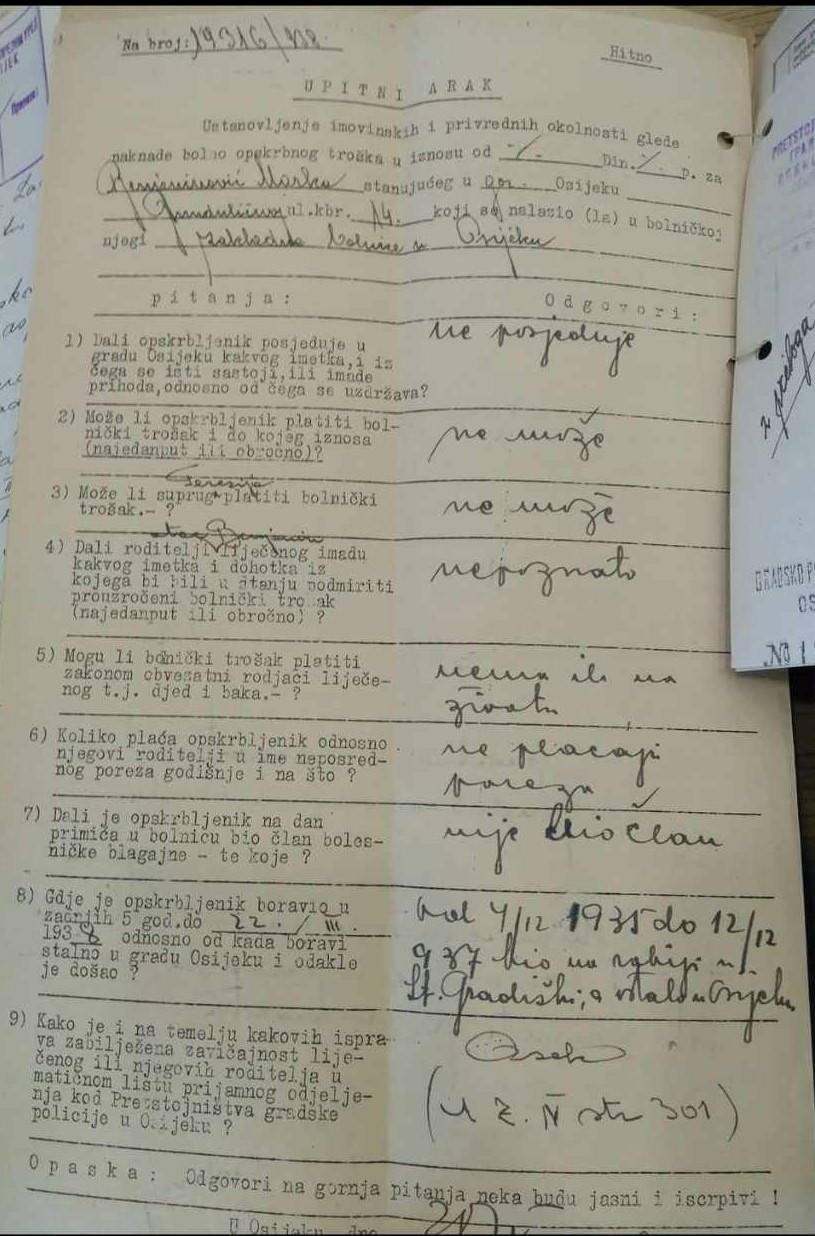 Na broj: 19316/938.
Hitno
UPITNI ARAK
Ustanovljenje imovinskih i privrednih okolnosti glede
naknade bolno opskrbnog troška u iznosu od -/- Din. -/- p. za
Marka stanujućeg u gor. Osijeku
Gundulićevoj ul.kbr. 14. koji se nalazio (la) u bolničkoj
njegi zakladne bolnice u Osijeku
pitanja:
Odgovori:
1) Dali opskrbljenik posjeduje u
gradu Osijeku kakvog imetka,i iz
čega se isti sastoji,ili imade
prihoda,odnosno od čega se uzdržava?
ne posjeduje
2) Može li opskrbljenik platiti bol-
nički trošak i do kojeg iznosa
(najedanput ili obročno)?
ne može
Terezija
3) Može li suprug platiti bolnički
trošak.- ?
ne može
otac Benjamin
4) Dali roditelji liječenog imadu
kakvog imetka i dohotka iz
kojega bi bili u stanju podmiriti
prouzročeni bolnički trošak
(najedanput ili obročno) ?
nepoznato
5) Mogu li bolnički trošak platiti
zakonom obvezatni rodjaci liječe-
nog t.j. djed i baka.- ?
nema ih na
životu
6) Koliko plaća opskrbljenik odnosno
njegovi roditelji u ime neposred-
nog poreza godišnje i na što ?
ne plaćaju
poreza
7) Dali je opskrbljenik na dan
primića u bolnicu bio član boles-
ničke blagajne - te koje ?
nije bio član
8) Gdje je opskrbljenik boravio u
zadnjih 5 god.do 22. / III.
1938 odnosno od kada boravi
stalno u gradu Osijeku i odakle
je došao ?
od 4/12 1935 do 12/12
937 bio na robiji u
St. Gradiški, a ostalo u Osijeku
9) Kako je i na temelju kakovih ispra-
va zabilježena zavičajnost lije-
čenog ili njegovih roditelja u
matičnom listu prijamnog odjelje-
nja kod Pretstojništva gradske
policije u Osijeku ?
Osiek
(U Z. IV str 301)
Opaska: Odgovori na gornja pitanja neka budu jasni i iscrpivi !
U Osijeku, dne
GRADSKO P
OS
No 1